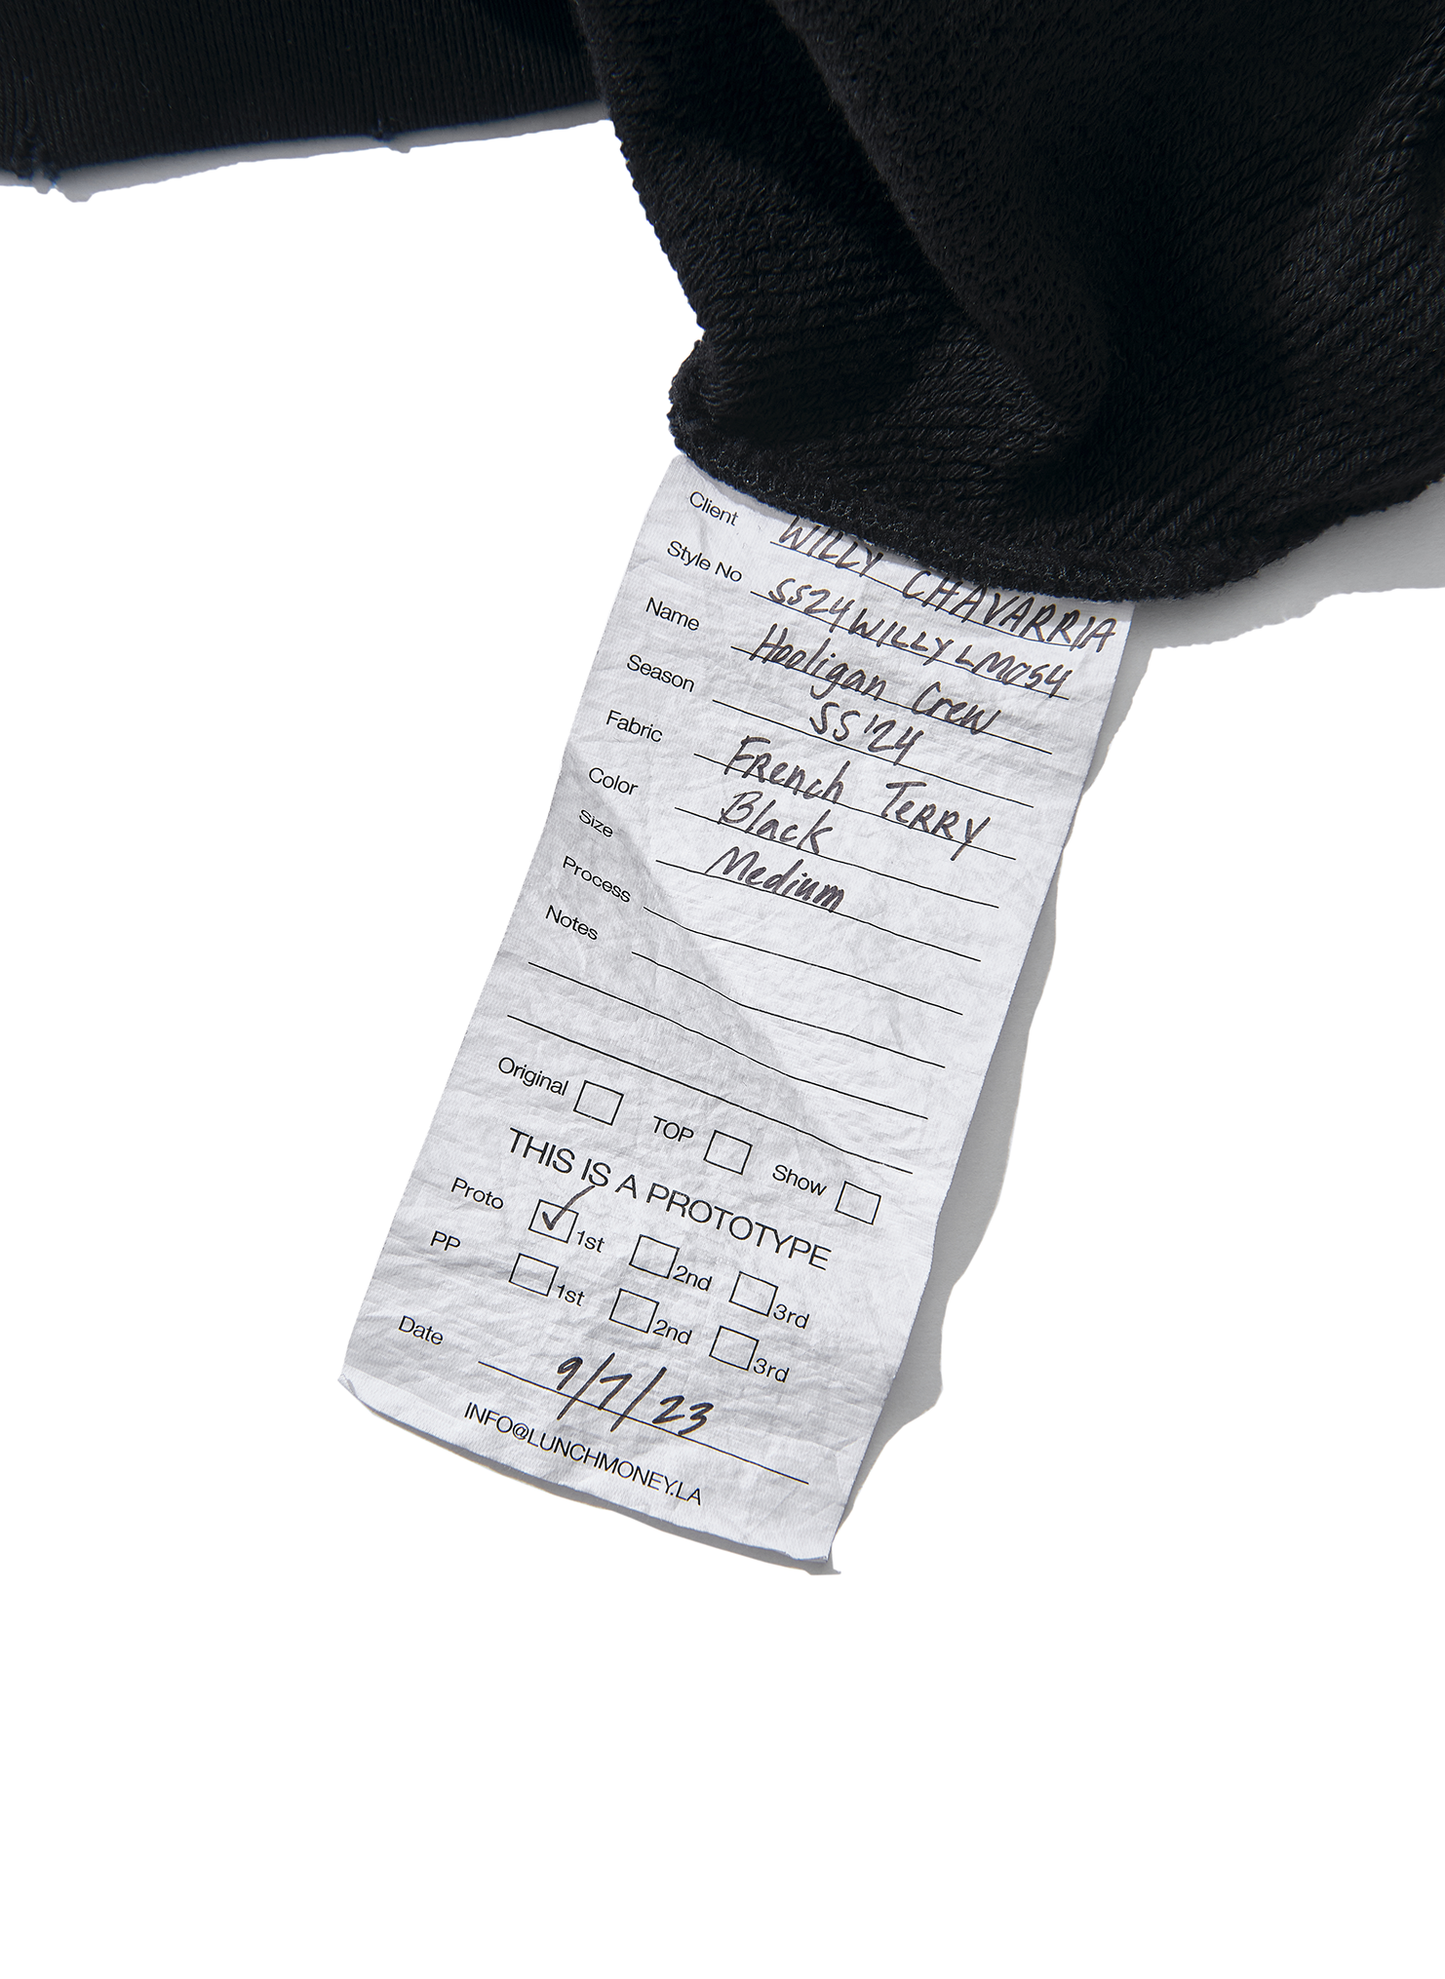 Client WILLY CHAVARRIA
Style No SS24WILLYLM054
Name Hooligan Crew
Season SS'24
Fabric French Terry
Color Black
Size Medium
Process
Notes
Original TOP Show
THIS IS A PROTOTYPE
Proto 1st 2nd 3rd
PP 1st 2nd 3rd
Date 9/7/23
INFO@LUNCHMONEY.LA